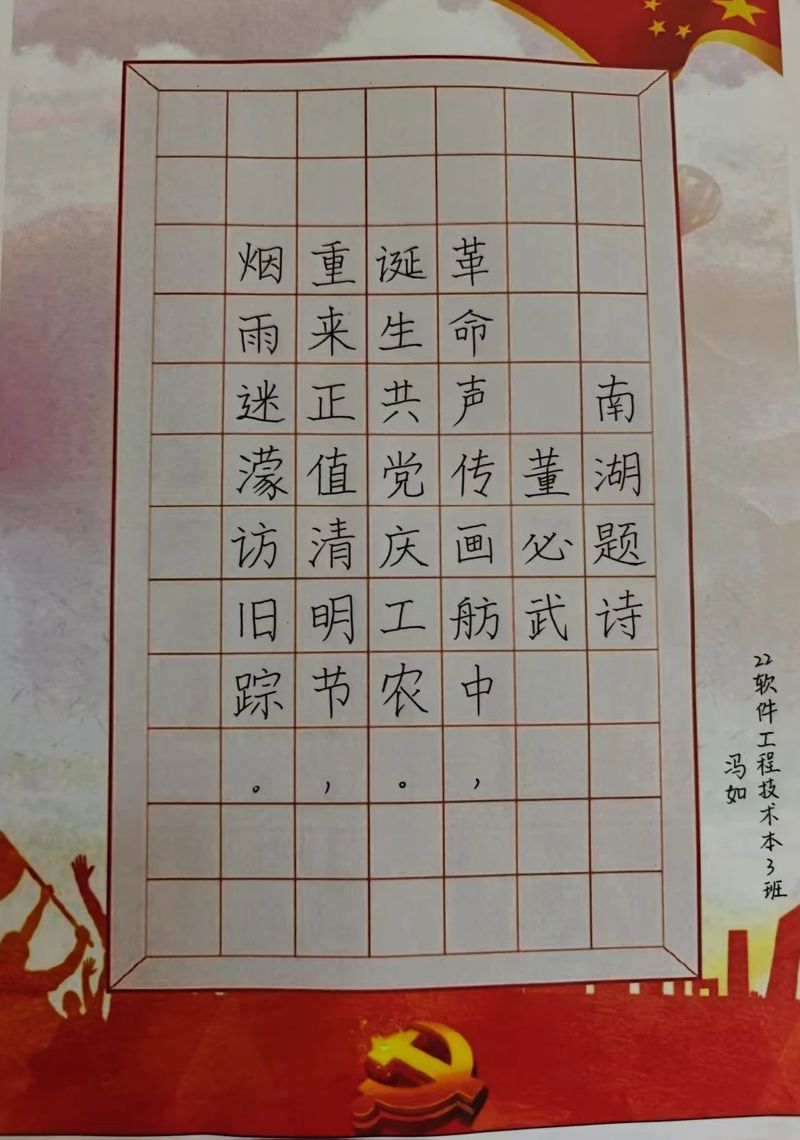 南湖题诗
董必武
革命声传画舫中，
诞生共党庆工农。
重来正值清明节，
烟雨迷濛访旧踪。
22软件工程技术本3班
冯如